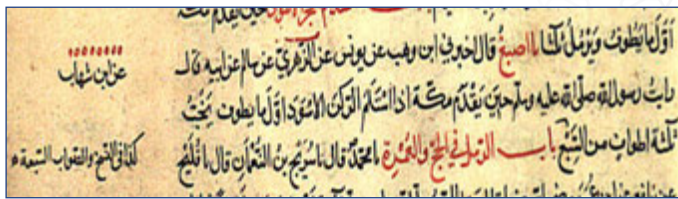 حين يقدم مكة
أول ما يطوف ويرمل ثلثا نا اصبغ قال اخبرني ابن وهب عن يونس عن الزهري عن سالم عن ابيه قال
عن ابن شهاب
رايت رسول الله صلى الله عليه وسلم حين يقدم مكة اذا استلم الركن الاسود اول ما يطوف يخب
ثلثة اطواف من السبع باب الرمل في الحج والعمرة نا محمد قال نا سريج بن النعمان قال نا فليح
كذا في النسخ والصواب السبعة
عن نافع عن ابن عمر